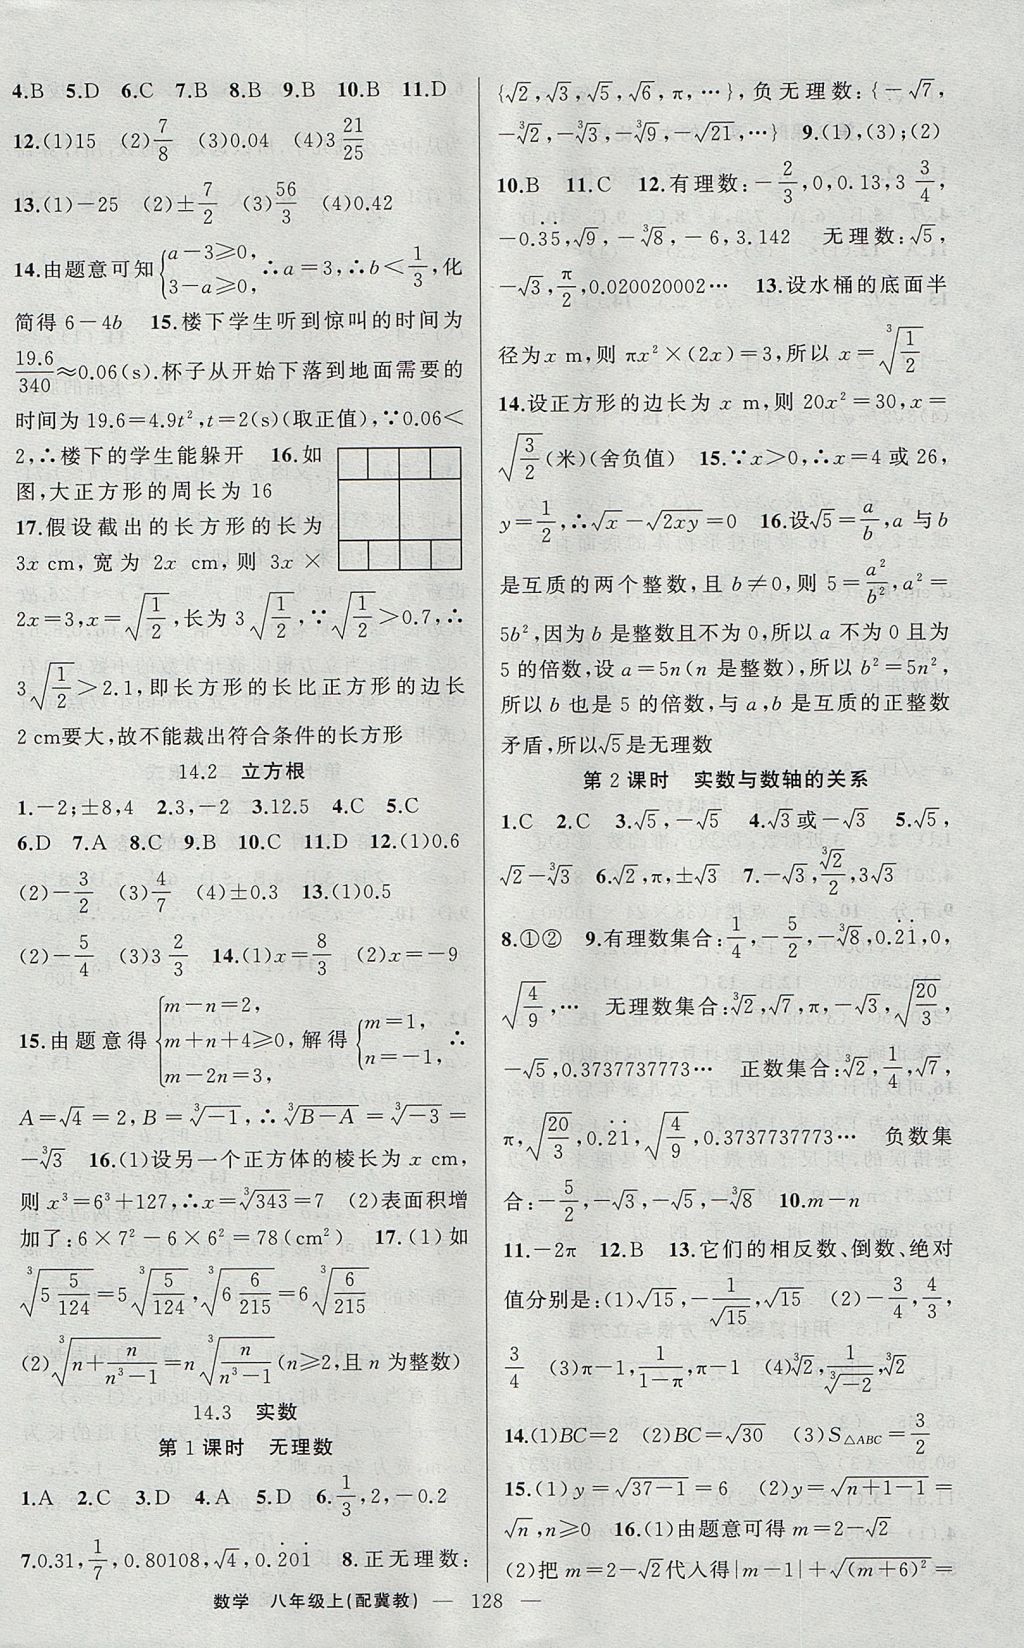 4.B 5.D 6.C 7.B 8.B 9.B 10.B 11.D
12.(1)15 (2)7/8 (3)0.04 (4)3 21/25
13.(1)-25 (2)±7/2 (3)56/3 (4)0.42
14.由题意可知{a-3≥0, 3-a≥0, ∴a=3,∴b<1/3,化
简得6-4b 15.楼下学生听到惊叫的时间为
19.6/340≈0.06(s).杯子从开始下落到地面需要的
时间为19.6=4.9t²,t=2(s)(取正值),∵0.06<
2,∴楼下的学生能躲开 16.如
图,大正方形的周长为16
17.假设截出的长方形的长为
3x cm,宽为2x cm,则3x×
2x=3,x=√(1/2),长为3√(1/2),∵√(1/2)>0.7,∴
3√(1/2)>2.1,即长方形的长比正方形的边长
2 cm要大,故不能裁出符合条件的长方形
14.2 立方根
1.-2;±8,4 2.3,-2 3.12.5 4.C 5.C
6.D 7.A 8.C 9.B 10.C 11.D 12.(1)0.6
(2)-3/2 (3)4/7 (4)±0.3 13.(1)0.5
(2)-5/4 (3)3 2/3 14.(1)x=8/3 (2)x=-9
15.由题意得{m-n=2, m+n+4≥0, m-2n=3, 解得{m=1, n=-1, ∴
A=√4=2,B=∛-1,∴∛(B-A)=∛-3=
-∛3 16.(1)设另一个正方体的棱长为x cm,
则x³=6³+127,∴x=∛343=7 (2)表面积增
加了:6×7²-6×6²=78(cm²) 17.(1)如
∛(5 5/124)=5∛(5/124),∛(6 6/215)=6∛(6/215)
(2)∛(n+n/(n³-1))=n∛(n/(n³-1))(n≥2,且n为整数)
14.3 实数
第1课时 无理数
1.A 2.C 3.D 4.A 5.D 6.1/3,2,-0.2
7.0.31,1/7,0.80108,√4,0.2̇01̇ 8.正无理数:
{√2,√3,√5,√6,π,…},负无理数:{-√7,
-∛2,-∛3,-∛9,-√21,…} 9.(1),(3);(2)
10.B 11.C 12.有理数:-2/3,0,0.13,3 3/4,
-0.3̇5̇,√9,-∛8,-6,3.142 无理数:√5,
-√3,π/2,0.020020002… 13.设水桶的底面半
径为x m,则πx²×(2x)=3,所以x=∛(1/2)
14.设正方形的边长为x m,则20x²=30,x=
√(3/2)(米)(舍负值) 15.∵x>0,∴x=4或26,
y=1/2,∴√x-√(2xy)=0 16.设√5=a/b,a与b
是互质的两个整数,且b≠0,则5=a²/b²,a²=
5b²,因为b是整数且不为0,所以a不为0且为
5的倍数,设a=5n(n是整数),所以b²=5n²,
所以b也是5的倍数,与a,b是互质的正整数
矛盾,所以√5是无理数
第2课时 实数与数轴的关系
1.C 2.C 3.√5,-√5 4.√3或-√3 5.√5,
√2-∛3 6.√2,π,±√3 7.-√3,∛2/√2,3√3
8.①② 9.有理数集合:1/4,-5/2,-∛8,0.2̇1̇,0,
√(4/9),… 无理数集合:∛2,√7,π,-√3,√(20/3),
-√5,0.3737737773… 正数集合:∛2,1/4,√7,
π,√(20/3),0.2̇1̇,√(4/9),0.3737737773… 负数集
合:-5/2,-√3,-√5,-∛8 10.m-n
11.-2π 12.B 13.它们的相反数、倒数、绝对
值分别是:(1)√15,-1/√15,√15 (2)-3/4,4/3,
3/4 (3)π-1,1/(1-π),π-1 (4)∛2,1/∛-2,∛2
14.(1)BC=2 (2)BC=√30 (3)S△ABC=3/2
15.(1)y=√(37-1)=6 (2)y=√(n+1-1)=
√n,n≥0 16.(1)由题意可得m=2-√2
(2)把m=2-√2代人得|m-1|+√(m+6)²=
数学 八年级上(配冀教) — 128 —